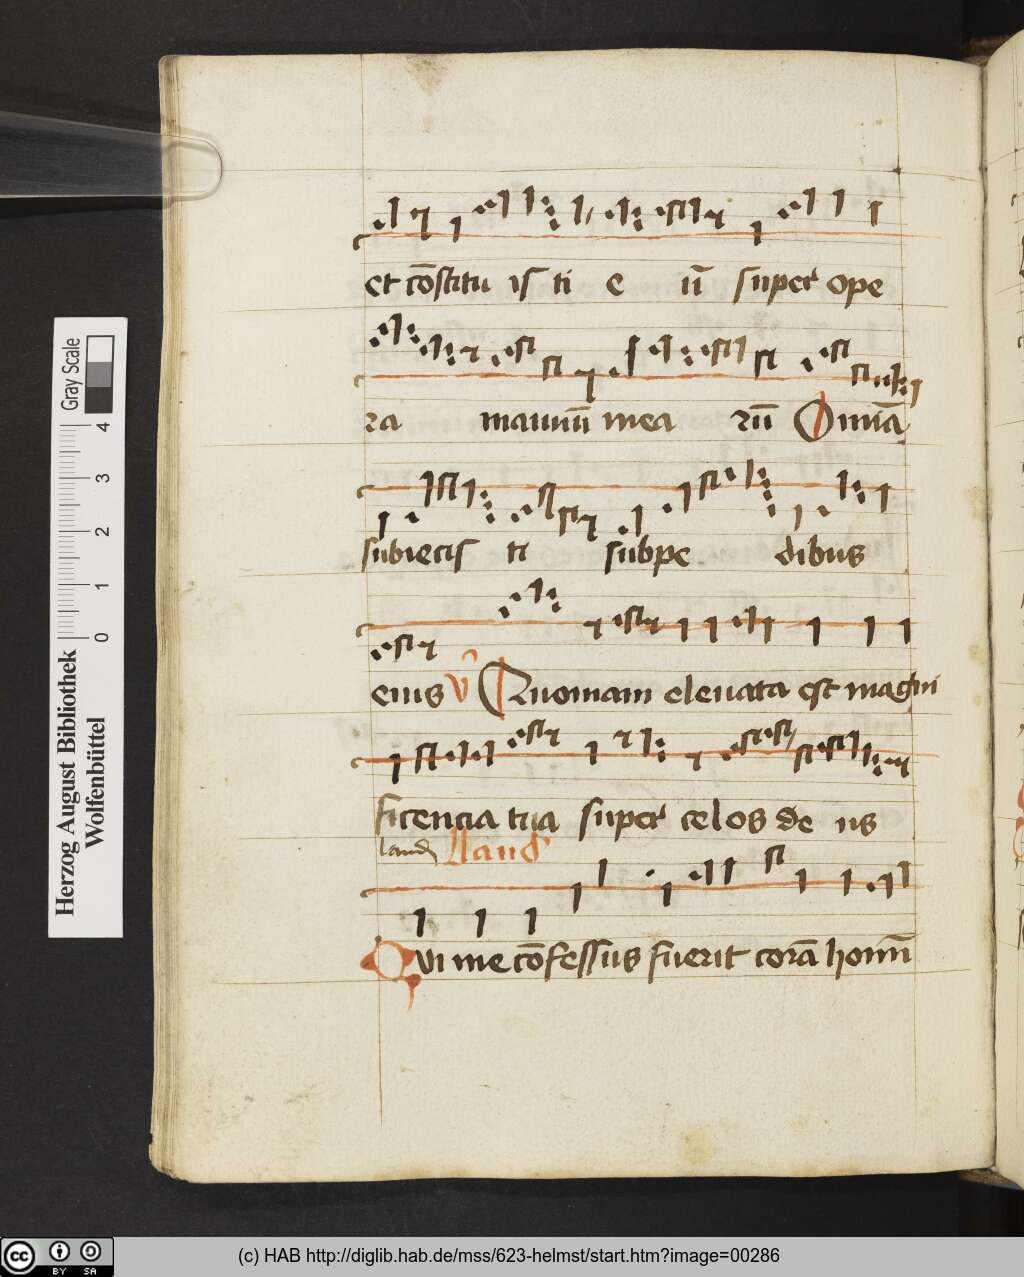 et co̅stitu is ti e u̅ super ope
ra manuu̅ mea ru̅ Omnia̅
subiecis ti subpe dibus
eius V̅ Quoniam eleuata est magni
ficencia tua super celos de us
laud Laud
Qvi me co̅fessus fuerit cora̅ homi̅
Gray Scale
4
3
2
1
0
Herzog August Bibliothek
Wolfenbüttel
cc BY SA
(c) HAB http://diglib.hab.de/mss/623-helmst/start.htm?image=00286